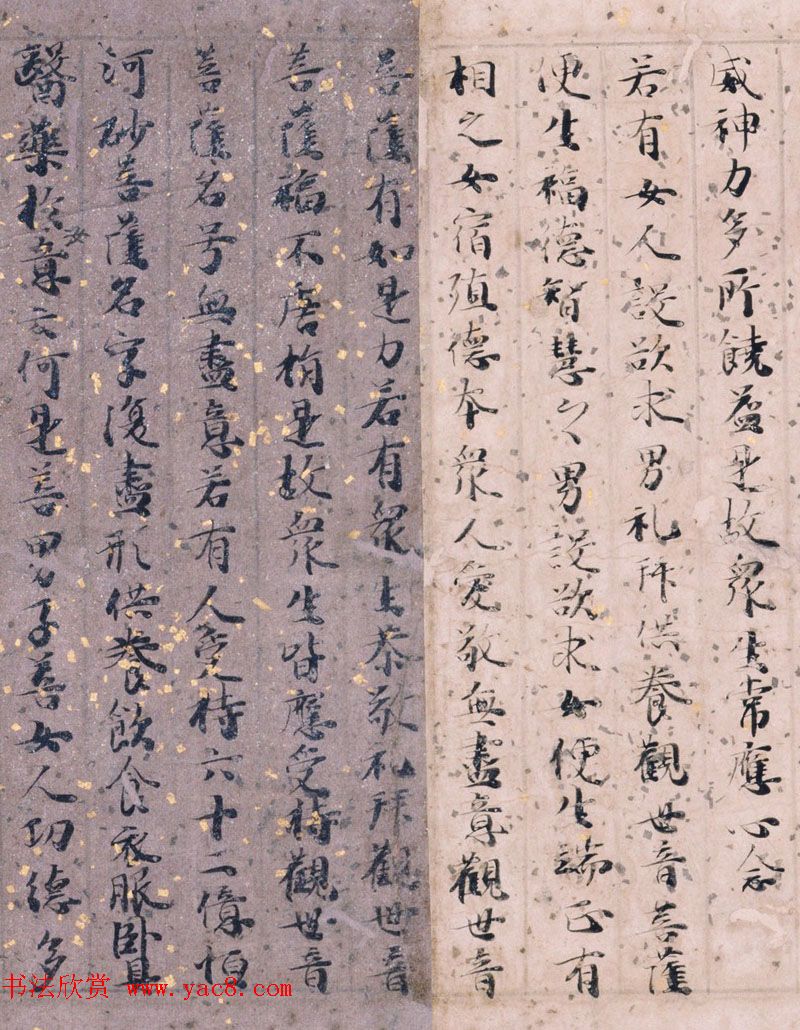 威神力多所饒益是故眾生常應心念
若有女人設欲求男礼拜供養觀世音菩薩
便生福德智慧之男設欲求女便生端正有
相之女宿殖德本眾人愛敬無盡意觀世音
菩薩有如是力若有眾生恭敬礼拜觀世音
菩薩福不唐捐是故眾生皆應受持觀世音
菩薩名号無盡意若有人受持六十二億恒
河砂菩薩名字復盡形供養飲食衣服卧具
醫藥於女意云何是善男子善女人功德多
书法欣赏 www.yac8.com